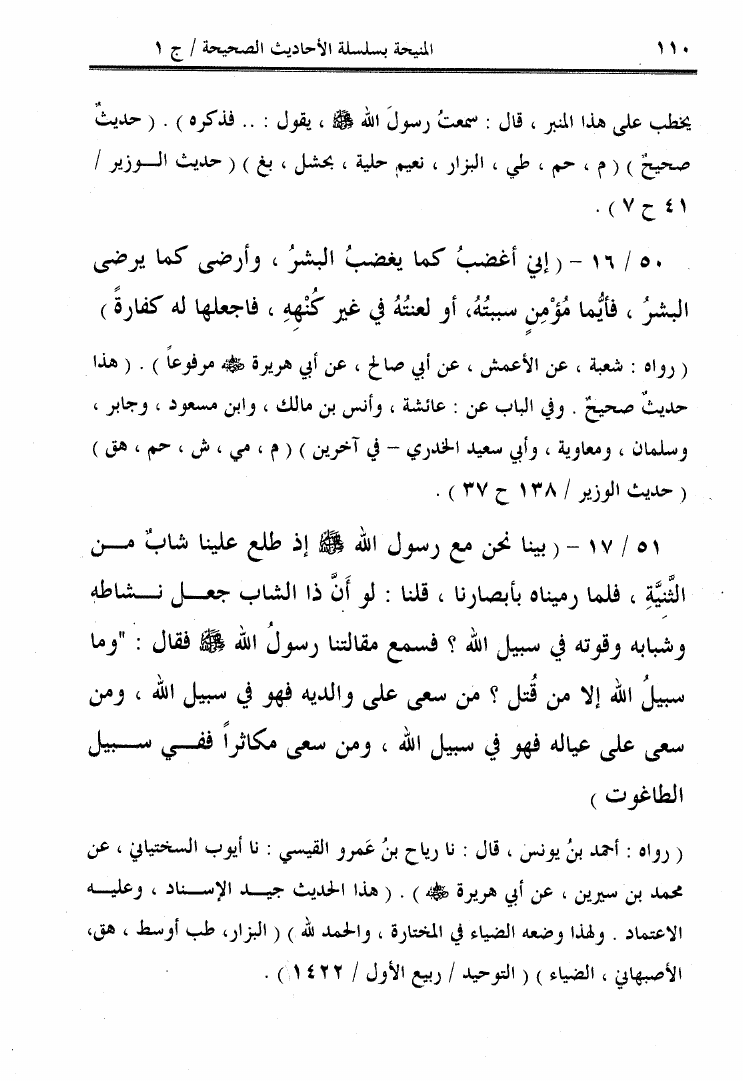 ١١٠ المنيحة بسلسلة الأحاديث الصحيحة / ج ١
يخطب على هذا المنبر ، قال : سمعتُ رسولَ الله ﷺ ، يقول : .. فذكره ) . ( حديثٌ
صحيحٌ ) ( م ، حم ، طي ، البزار ، نعيم حلية ، بحشل ، بغ ) ( حديث الـوزير /
٤١ ح ٧ ) .
٥٠ / ١٦ – ( إني أغضبُ كما يغضبُ البشرُ ، وأرضى كما يرضى
البشرُ ، فأيُّما مُؤْمِنٍ سببتُهُ، أو لعنتُهُ في غير كُنْهِهِ ، فاجعلها له كفارةً )
( رواه : شعبة ، عن الأعمش ، عن أبي صالح ، عن أبي هريرة ﷺ مرفوعاً ) . ( هذا
حديثٌ صحيحٌ . وفي الباب عن : عائشة ، وأنس بن مالك ، وابن مسعود ، وجابر ،
وسلمان ، ومعاوية ، وأبي سعيد الخدري – في آخرين ) ( م ، مي ، ش ، حم ، هق )
( حديث الوزير / ١٣٨ ح ٣٧ ) .
٥١ / ١٧ – ( بينا نحن مع رسول الله ﷺ إذ طلع علينا شابٌ مـــن
الثَّنِيَّةِ ، فلما رميناه بأبصارنا ، قلنا : لو أَنَّ ذا الشاب جعـــل نـــشاطه
وشبابه وقوته في سبيل الله ؟ فسمع مقالتنا رسولُ الله ﷺ فقال : "وما
سبيلُ الله إلا من قُتل ؟ من سعى على والديه فهو في سبيل الله ، ومن
سعى على عياله فهو في سبيل الله ، ومن سعى مكاثراً ففـــي ســـبيل
الطاغوت )
( رواه : أحمد بنُ يونس ، قال : نا رياح بنُ عَمرو القيسي : نا أيوب السختياني ، عن
محمد بن سيرين ، عن أبي هريرة ﷺ ) . ( هذا الحديث جيــد الإســناد ، وعليــه
الاعتماد . ولهذا وضعه الضياء في المختارة ، والحمد لله ) ( البزار، طب أوسط ، هق،
الأصبهاني ، الضياء ) ( التوحيد / ربيع الأول / ١٤٢٢ ) .